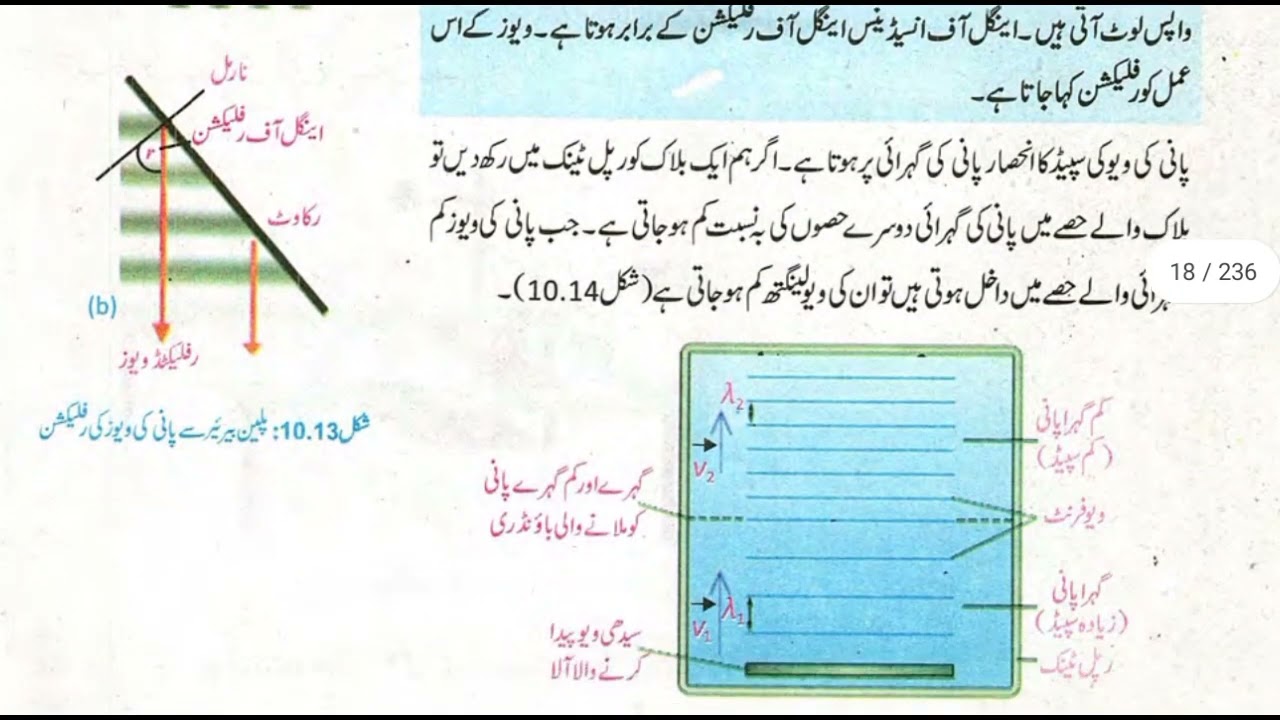 واپس لوٹ آتی ہیں۔ اینگل آف انسیڈینس اینگل آف رفلیکشن کے برابر ہوتا ہے۔ ویوز کے اس
عمل کو رفلیکشن کہا جاتا ہے۔
پانی کی ویو کی سپیڈ کا انحصار پانی کی گہرائی پر ہوتا ہے۔ اگر ہم ایک بلاک کو رپل ٹینک میں رکھ دیں تو
بلاک والے حصے میں پانی کی گہرائی دوسرے حصوں کی بہ نسبت کم ہو جاتی ہے۔ جب پانی کی ویوز کم
گہرائی والے حصے میں داخل ہوتی ہیں تو ان کی ویولینگتھ کم ہو جاتی ہے (شکل 10.14)۔
18 / 236
نارمل
اینگل آف رفلیکشن
r
رکاوٹ
(b)
رفلیکٹڈ ویوز
شکل 10.13: پلین بیرئیر سے پانی کی ویوز کی رفلیکشن
λ2
v2
کم گہرا پانی
(کم سپیڈ)
گہرے اور کم گہرے پانی
کو ملانے والی باؤنڈری
ویو فرنٹ
λ1
v1
گہرا پانی
(زیادہ سپیڈ)
سیدھی ویو پیدا
کرنے والا آلا
رپل ٹینک